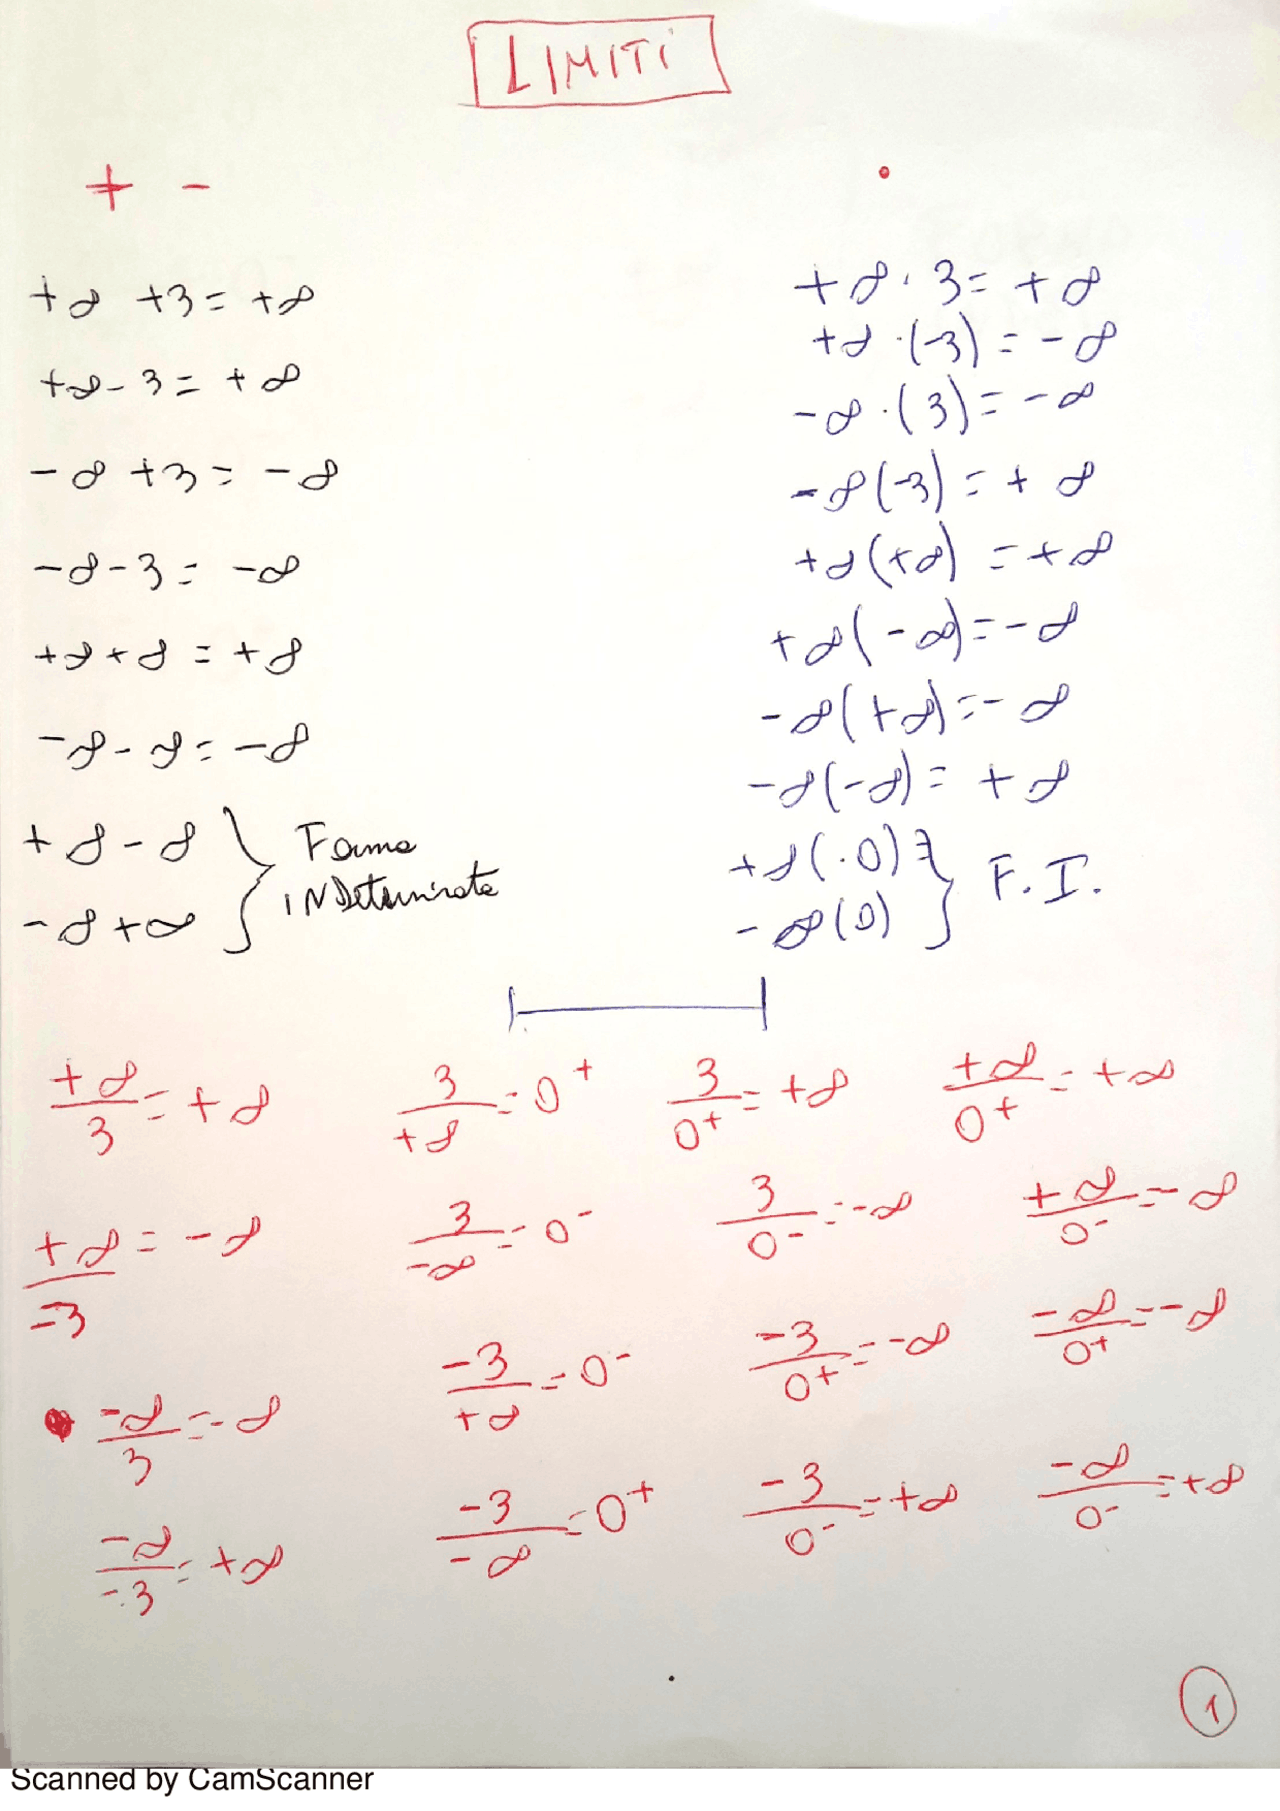 LIMITI
+ -
+∞ +3 = +∞
+∞ - 3 = +∞
-∞ +3 = -∞
-∞ - 3 = -∞
+∞ + ∞ = +∞
-∞ - ∞ = -∞
+∞ - ∞ } Forma
-∞ + ∞ } INDeterminata
·
+∞ · 3 = +∞
+∞ · (-3) = -∞
-∞ · (3) = -∞
-∞ (-3) = +∞
+∞ (+∞) = +∞
+∞ (-∞) = -∞
-∞ (+∞) = -∞
-∞ (-∞) = +∞
+∞ (·0) = } F.I.
-∞ (0) }
+∞/3 = +∞   3/+∞ = 0⁺   3/0⁺ = +∞   +∞/0⁺ = +∞
+∞/-3 = -∞   3/-∞ = 0⁻   3/0⁻ = -∞   +∞/0⁻ = -∞
-∞/3 = -∞   -3/+∞ = 0⁻   -3/0⁺ = -∞   -∞/0⁺ = -∞
-∞/-3 = +∞   -3/-∞ = 0⁺   -3/0⁻ = +∞   -∞/0⁻ = +∞
1
Scanned by CamScanner